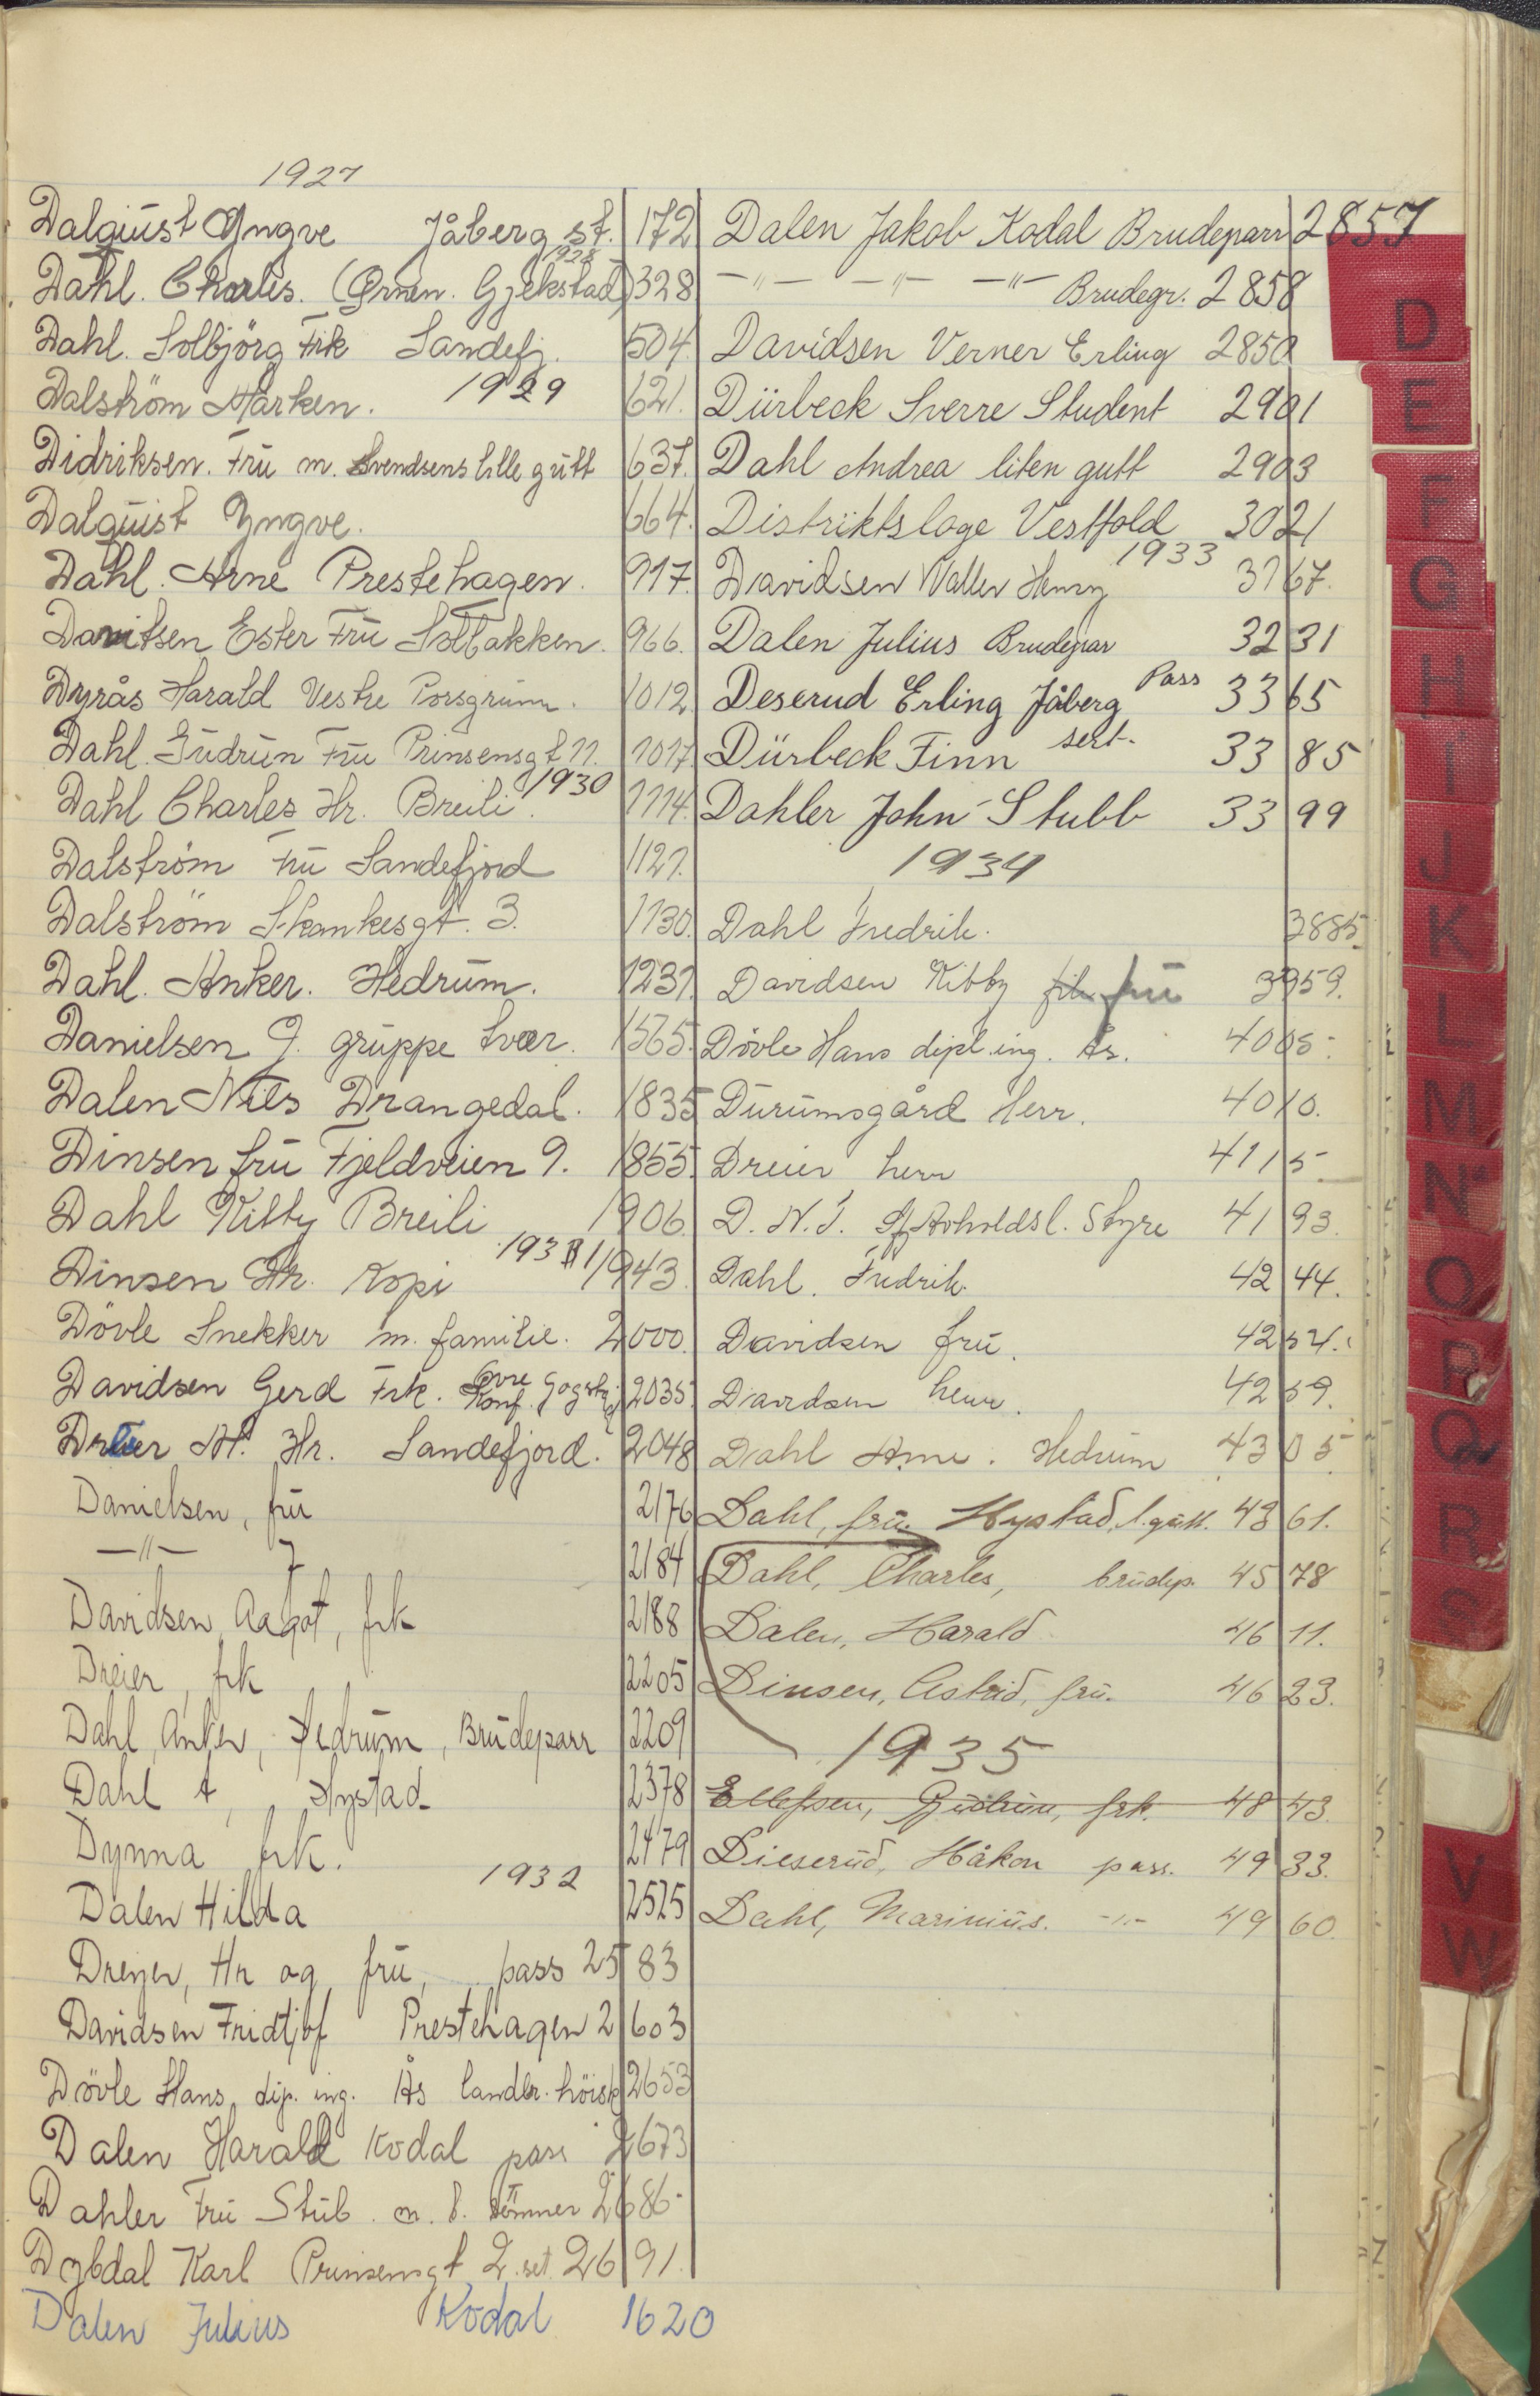 1927
Dalquist Yngve Jåberg st. 172
1928
Dahl. Charles. (Ørnen. Gjekstad) 328
Dahl. Solbjörg Frk Sandefj. 504.
1929
Dalström Marken. 621.
Didriksen. Fru m. Svendsens lille gutt 637.
Dalquist Yngve. 664.
Dahl. Arne Prestehagen. 917.
Davitsen Ester Fru Solbakken. 966.
Dyrås Harald Vestre Porsgrunn. 1012
Dahl. Gudrun Fru Prinsensgt 11. 1017
1930
Dahl Charles Hr. Breili. 1114.
Dalström Fru Sandefjord 1121.
Dalström Skankesgt. 3. 1130.
Dahl. Anker. Hedrum. 1231.
Danielsen G. gruppe tvær. 1565.
Dalen Nils Drangedal. 1835
Dinsen fru Fjeldveien 9. 1855.
Dahl Kitty Breili 1906
1931
Dinsen Hr. Kopi 1943.
Dövle Snekker m. familie. 2000.
Davidsen Gerd Frk. Konf. Övre Gogstad 2035.
Dreier M. Hr. Sandefjord. 2048
Danielsen, fru 2176
—"— 2184
Davidsen, Aagot, frk 2188
Dreier, frk 2205
Dahl, Anker, Hedrum, Brudeparr 2209
Dahl A, Hystad 2378
Dynna frk. 2479
1932
Dalen Hilda 2525
Dreyer, Hr og fru, pass 2583
Davidsen Fridtjof Prestehagen 2603
Dövle Hans, dip. ing. Ås landbr. höisk 2653
Dalen Harald Kodal pass 2673
Dahler Fru Stub. m. 2686
Dybdal Karl Prinsensgt 2. set. 2691.
Dalen Julius Kodal 1620
Dalen Jakob Kodal Brudeparr 2857
—"— —"— —"— Brudegr. 2858
Davidsen Verner Erling 2850
Dürbeck Sverre Student 2901
Dahl Andrea liten gutt 2903
Distriktsloge Vestfold 3021
1933
Davidsen Valler Henry 3167.
Dalen Julius Brudepar 3231
Deserud Erling Jåberg Pass 3365
Dürbeck Finn sert. 3385
Dahler John Stubb 3399
1934
Dahl Fredrik. 3885.
Davidsen Kibby frk fru 3959.
Dövle Hans dipl.ing. hr. 4005.
Durumsgård Herr. 4010.
Dreier herr 4115
D. N. T. Avholdsl. Styre 4193.
Dahl. Fredrik. 4244.
Davidsen fru. 4254.
Davidsen herr. 4259.
Dahl Arne. Hedrum 4305
Dahl, fru. Hystad, l.gutt. 4361.
Dahl, Charles, brudep. 4578
Dalen, Harald 4611.
Dinsen, Astrid, fru. 4623.
1935
Ellefsen, Gudrun, frk. 4843.
Dieserud, Håkon pass. 4933.
Dahl, Marinius. -"- 4960.
D
E
F
G
H
I
J
K
L
M
N
O
P
Q
R
S
V
W